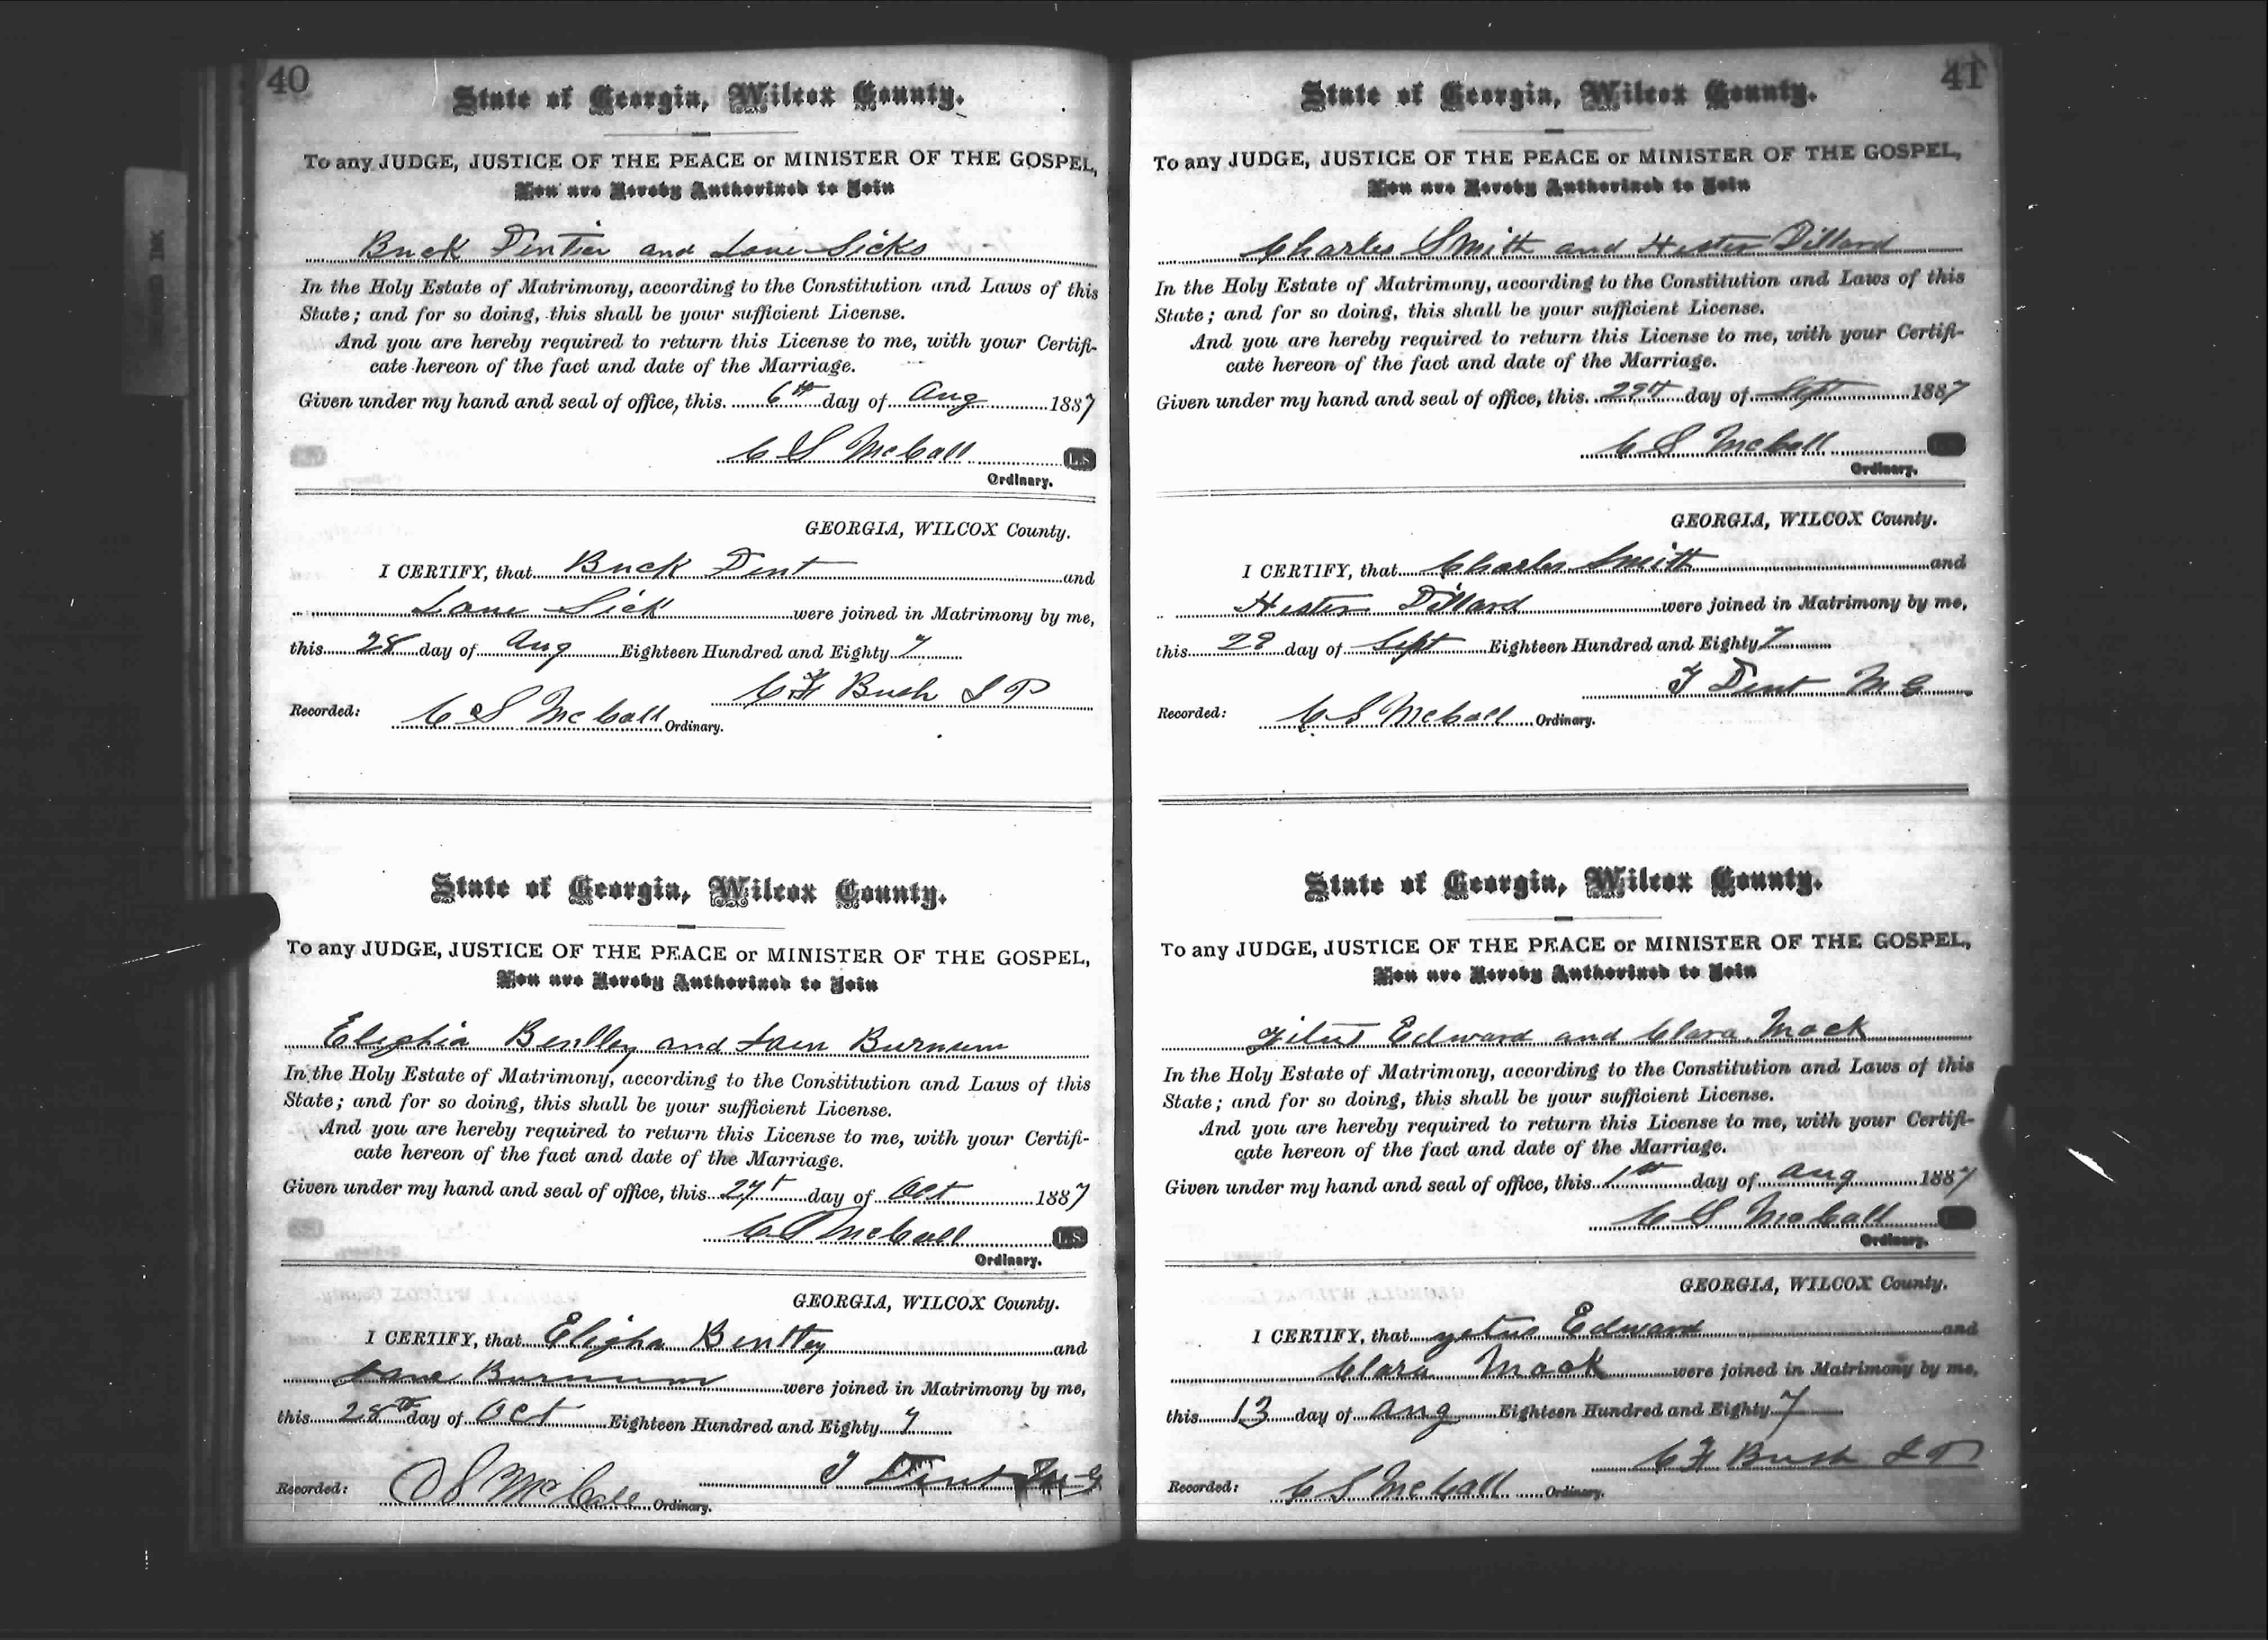 40
State of Georgia, Wilcox County.
To any JUDGE, JUSTICE OF THE PEACE or MINISTER OF THE GOSPEL,
You are Hereby Authorized to Join
Buck and Lane Sicks
In the Holy Estate of Matrimony, according to the Constitution and Laws of this
State; and for so doing, this shall be your sufficient License.
And you are hereby required to return this License to me, with your Certifi-
cate hereon of the fact and date of the Marriage.
Given under my hand and seal of office, this 6th day of Aug 1887
C S McCall L.S.
Ordinary.
GEORGIA, WILCOX County.
I CERTIFY, that Buck Dent and
Lane Sick were joined in Matrimony by me,
this 28 day of Aug Eighteen Hundred and Eighty 7
C H Bush J P
Recorded: C S McCall Ordinary.
State of Georgia, Wilcox County.
To any JUDGE, JUSTICE OF THE PEACE or MINISTER OF THE GOSPEL,
You are Hereby Authorized to Join
Benlley and Burnum
In the Holy Estate of Matrimony, according to the Constitution and Laws of this
State; and for so doing, this shall be your sufficient License.
And you are hereby required to return this License to me, with your Certifi-
cate hereon of the fact and date of the Marriage.
Given under my hand and seal of office, this 27t day of Oct 1887
C S McCall L.S.
Ordinary.
GEORGIA, WILCOX County.
I CERTIFY, that Eligha Bentley and
Jane Burnum were joined in Matrimony by me,
this 28th day of Oct Eighteen Hundred and Eighty 7
J Dent M G
Recorded: C S McCall Ordinary.
41
State of Georgia, Wilcox County.
To any JUDGE, JUSTICE OF THE PEACE or MINISTER OF THE GOSPEL,
You are Hereby Authorized to Join
Charles Smith and Hester Dillard
In the Holy Estate of Matrimony, according to the Constitution and Laws of this
State; and for so doing, this shall be your sufficient License.
And you are hereby required to return this License to me, with your Certifi-
cate hereon of the fact and date of the Marriage.
Given under my hand and seal of office, this day of Sept 1887
C S McCall
Ordinary.
GEORGIA, WILCOX County.
I CERTIFY, that Charles Smith and
Hester Dillard were joined in Matrimony by me,
this day of Sept Eighteen Hundred and Eighty 7
J Dent M G
Recorded: C S McCall Ordinary.
State of Georgia, Wilcox County.
To any JUDGE, JUSTICE OF THE PEACE or MINISTER OF THE GOSPEL,
You are Hereby Authorized to Join
Edward and Clara Mack
In the Holy Estate of Matrimony, according to the Constitution and Laws of this
State; and for so doing, this shall be your sufficient License.
And you are hereby required to return this License to me, with your Certifi-
cate hereon of the fact and date of the Marriage.
Given under my hand and seal of office, this 1th day of Aug 1887
C S McCall
Ordinary.
GEORGIA, WILCOX County.
I CERTIFY, that Edward and
Clara Mack were joined in Matrimony by me,
this 13 day of Aug Eighteen Hundred and Eighty 7
C H Bush J P
Recorded: C S McCall Ordinary.